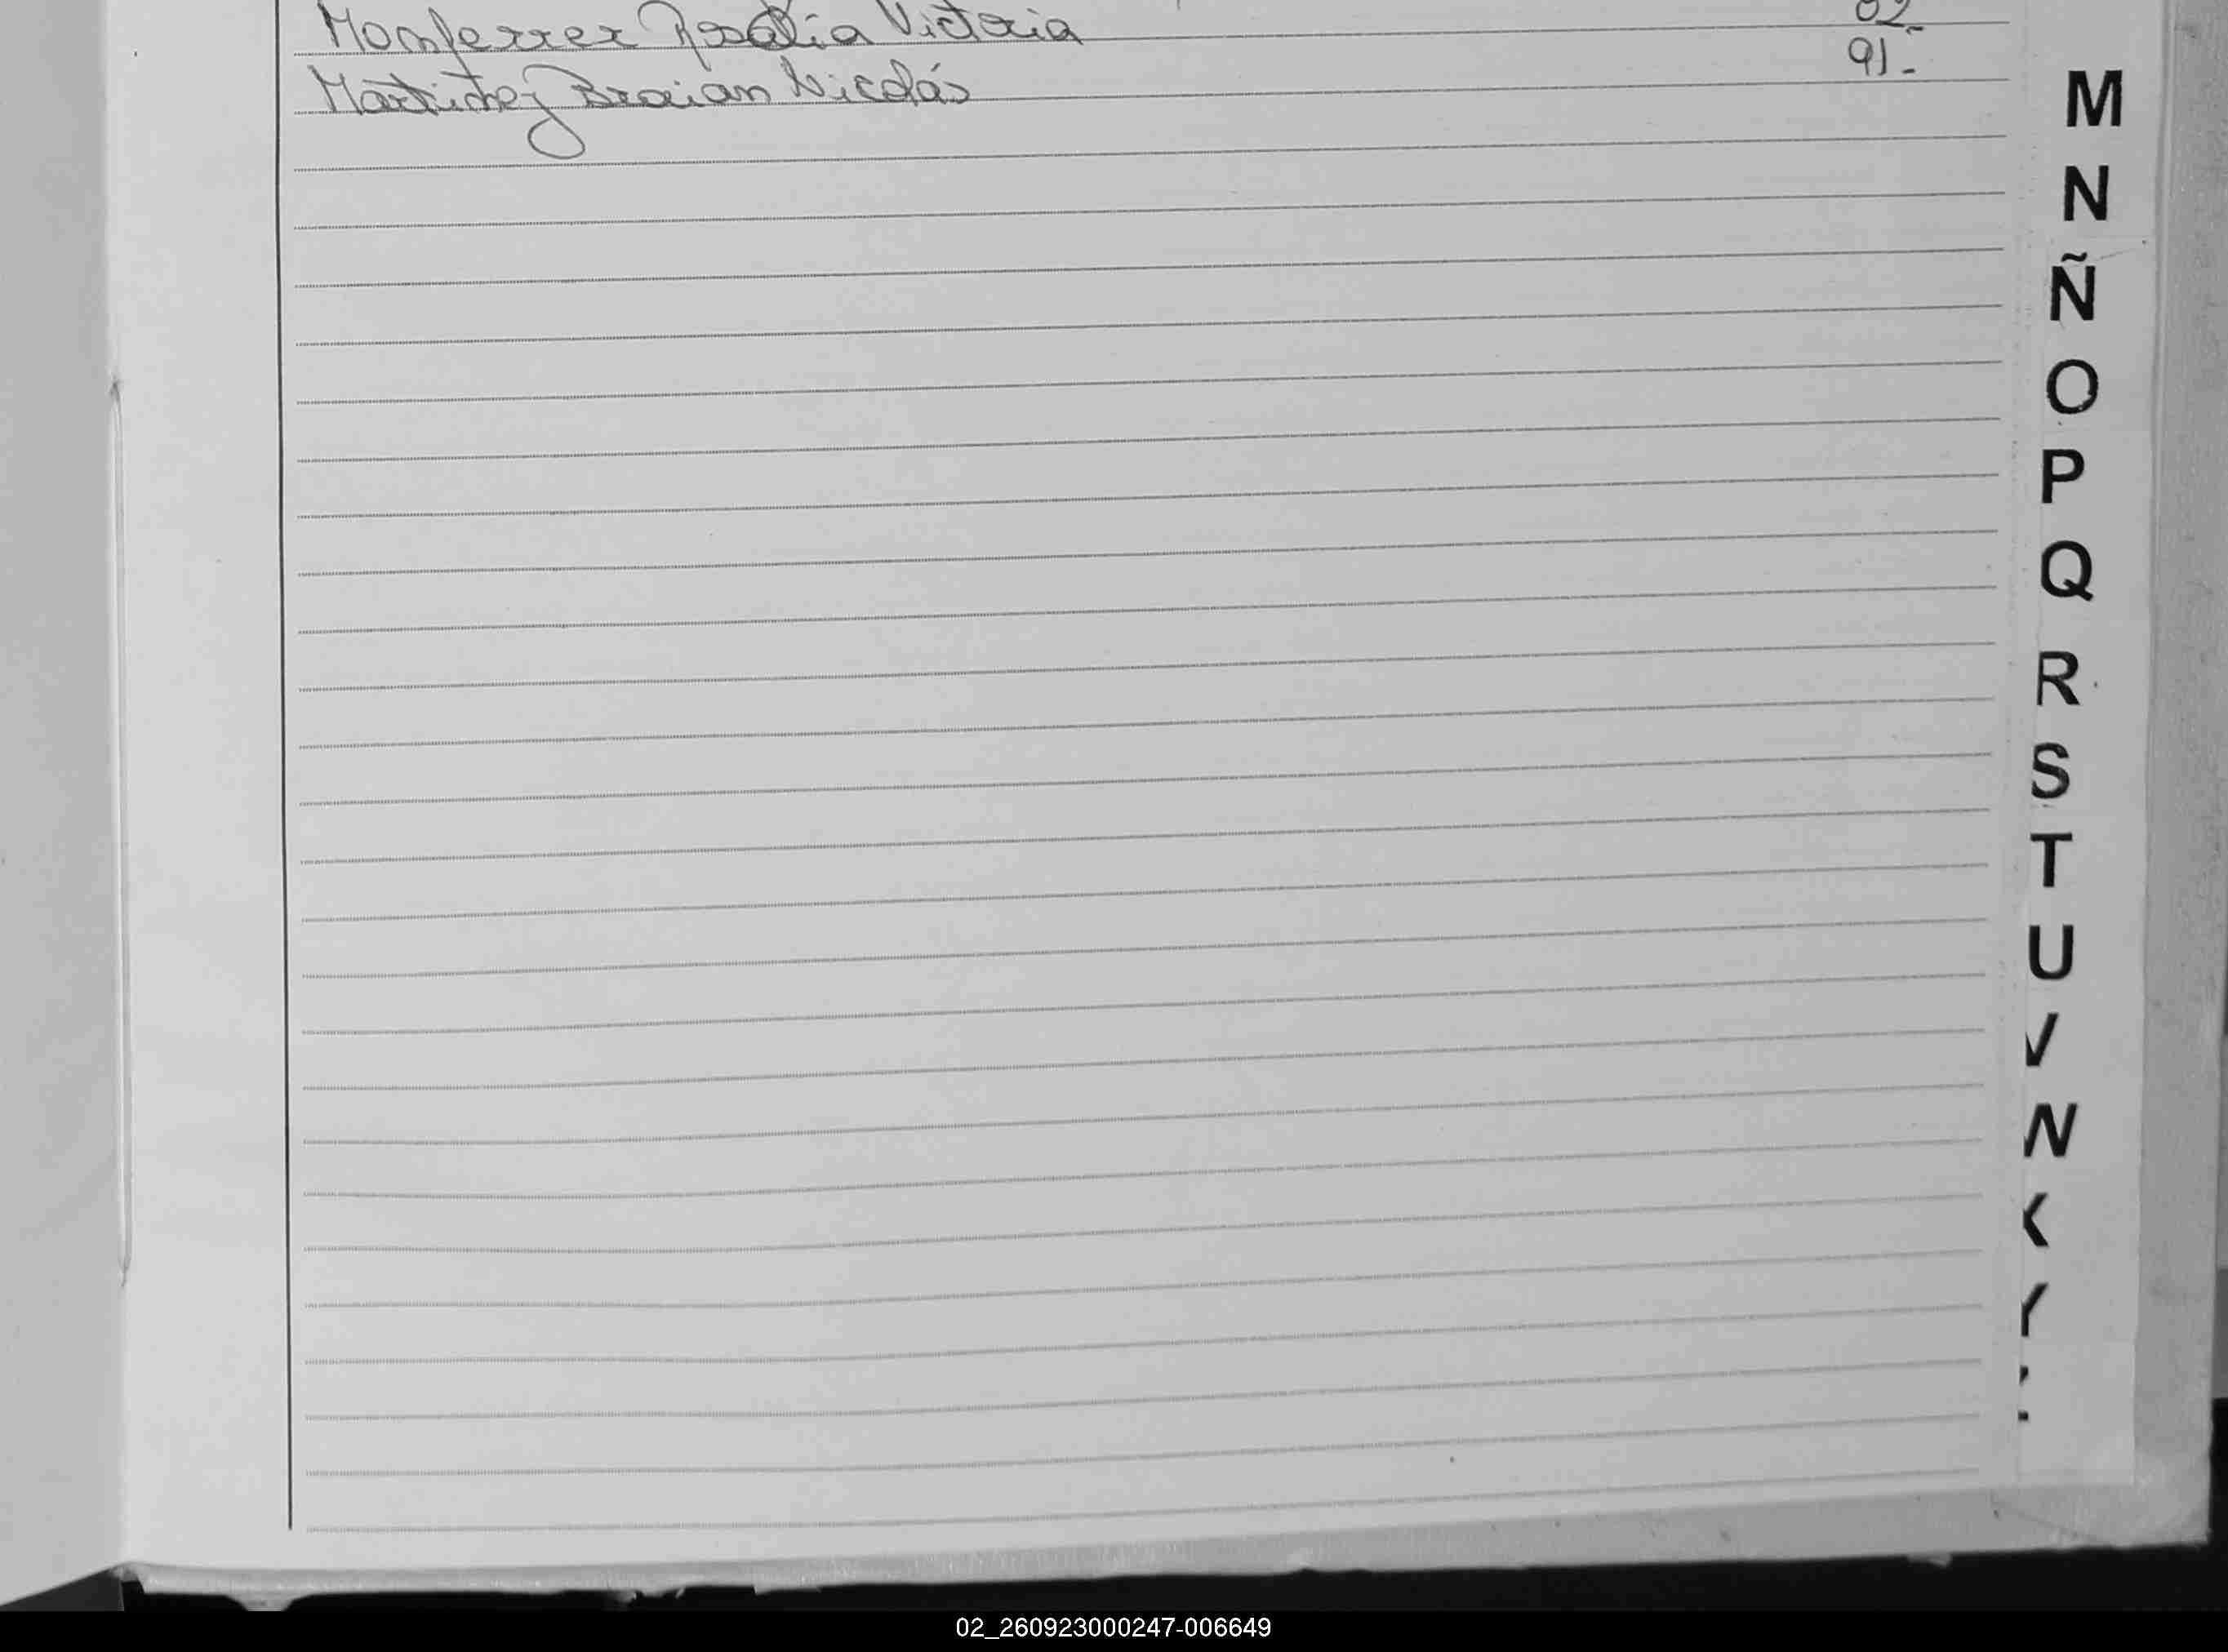 Monferrer Rosalía Victoria 02-
Martinez Braian Nicolás 91-
M
N
Ñ
O
P
Q
R
S
T
U
V
W
X
Y
Z
02_260923000247-006649